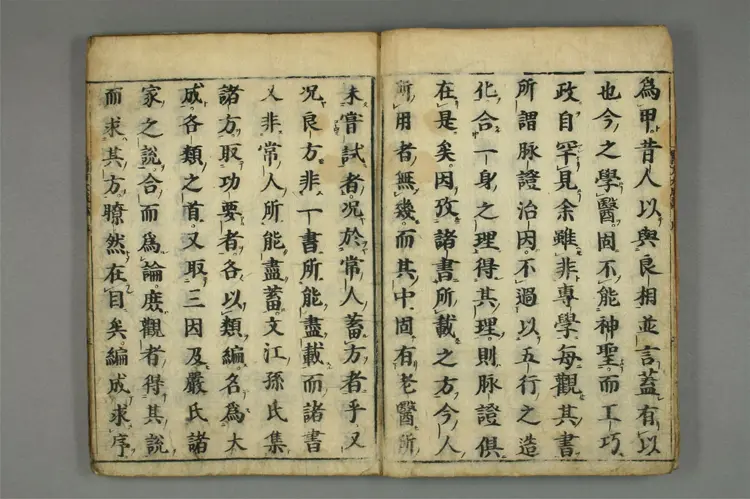 爲甲昔人以與良相並言蓋有以
也今之學醫固不能神聖而工巧
政自罕見余雖非專學每觀其書
所謂脉證治因不過以五行之造
化合一身之理得其理則脉證俱
在是矣因攷諸書所載之方今人
所用者無幾而其中固有老醫所
未嘗試者况於常人蓄方者乎又
况良方非一書所能盡載而諸書
又非常人所能盡蓄文江孫氏集
諸方取功要者各以類編名爲大
成各類之首又取三因及嚴氏諸
家之說合而爲論庶觀者得其說
而求其方瞭然在目矣編成求序